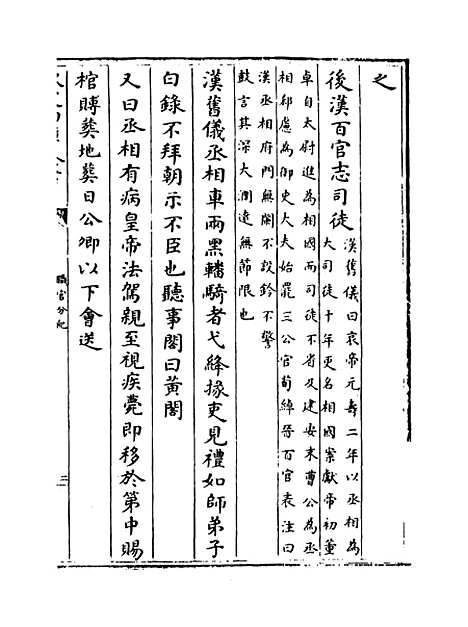 之
後漢百官志司徒漢舊儀曰哀帝元壽二年以丞相為
大司徒十年更名相國案獻帝初董
卓自太尉進為相國而司徒不省及建安末曹公為丞
相郗慮為御史大夫始罷三公官荀綽晉百官表注曰
漢丞相府門無闌不設鈴不警
鼓言其深大濶遠無節限也
漢舊儀丞相車兩黑轓騎者弋絳掾吏見禮如師弟子
白錄不拜朝示不臣也聽事閣曰黃閤
又曰丞相有病皇帝法駕親至視疾薨即移於第中賜
棺賻葬地葬日公卿以下會送
職官分紀
三